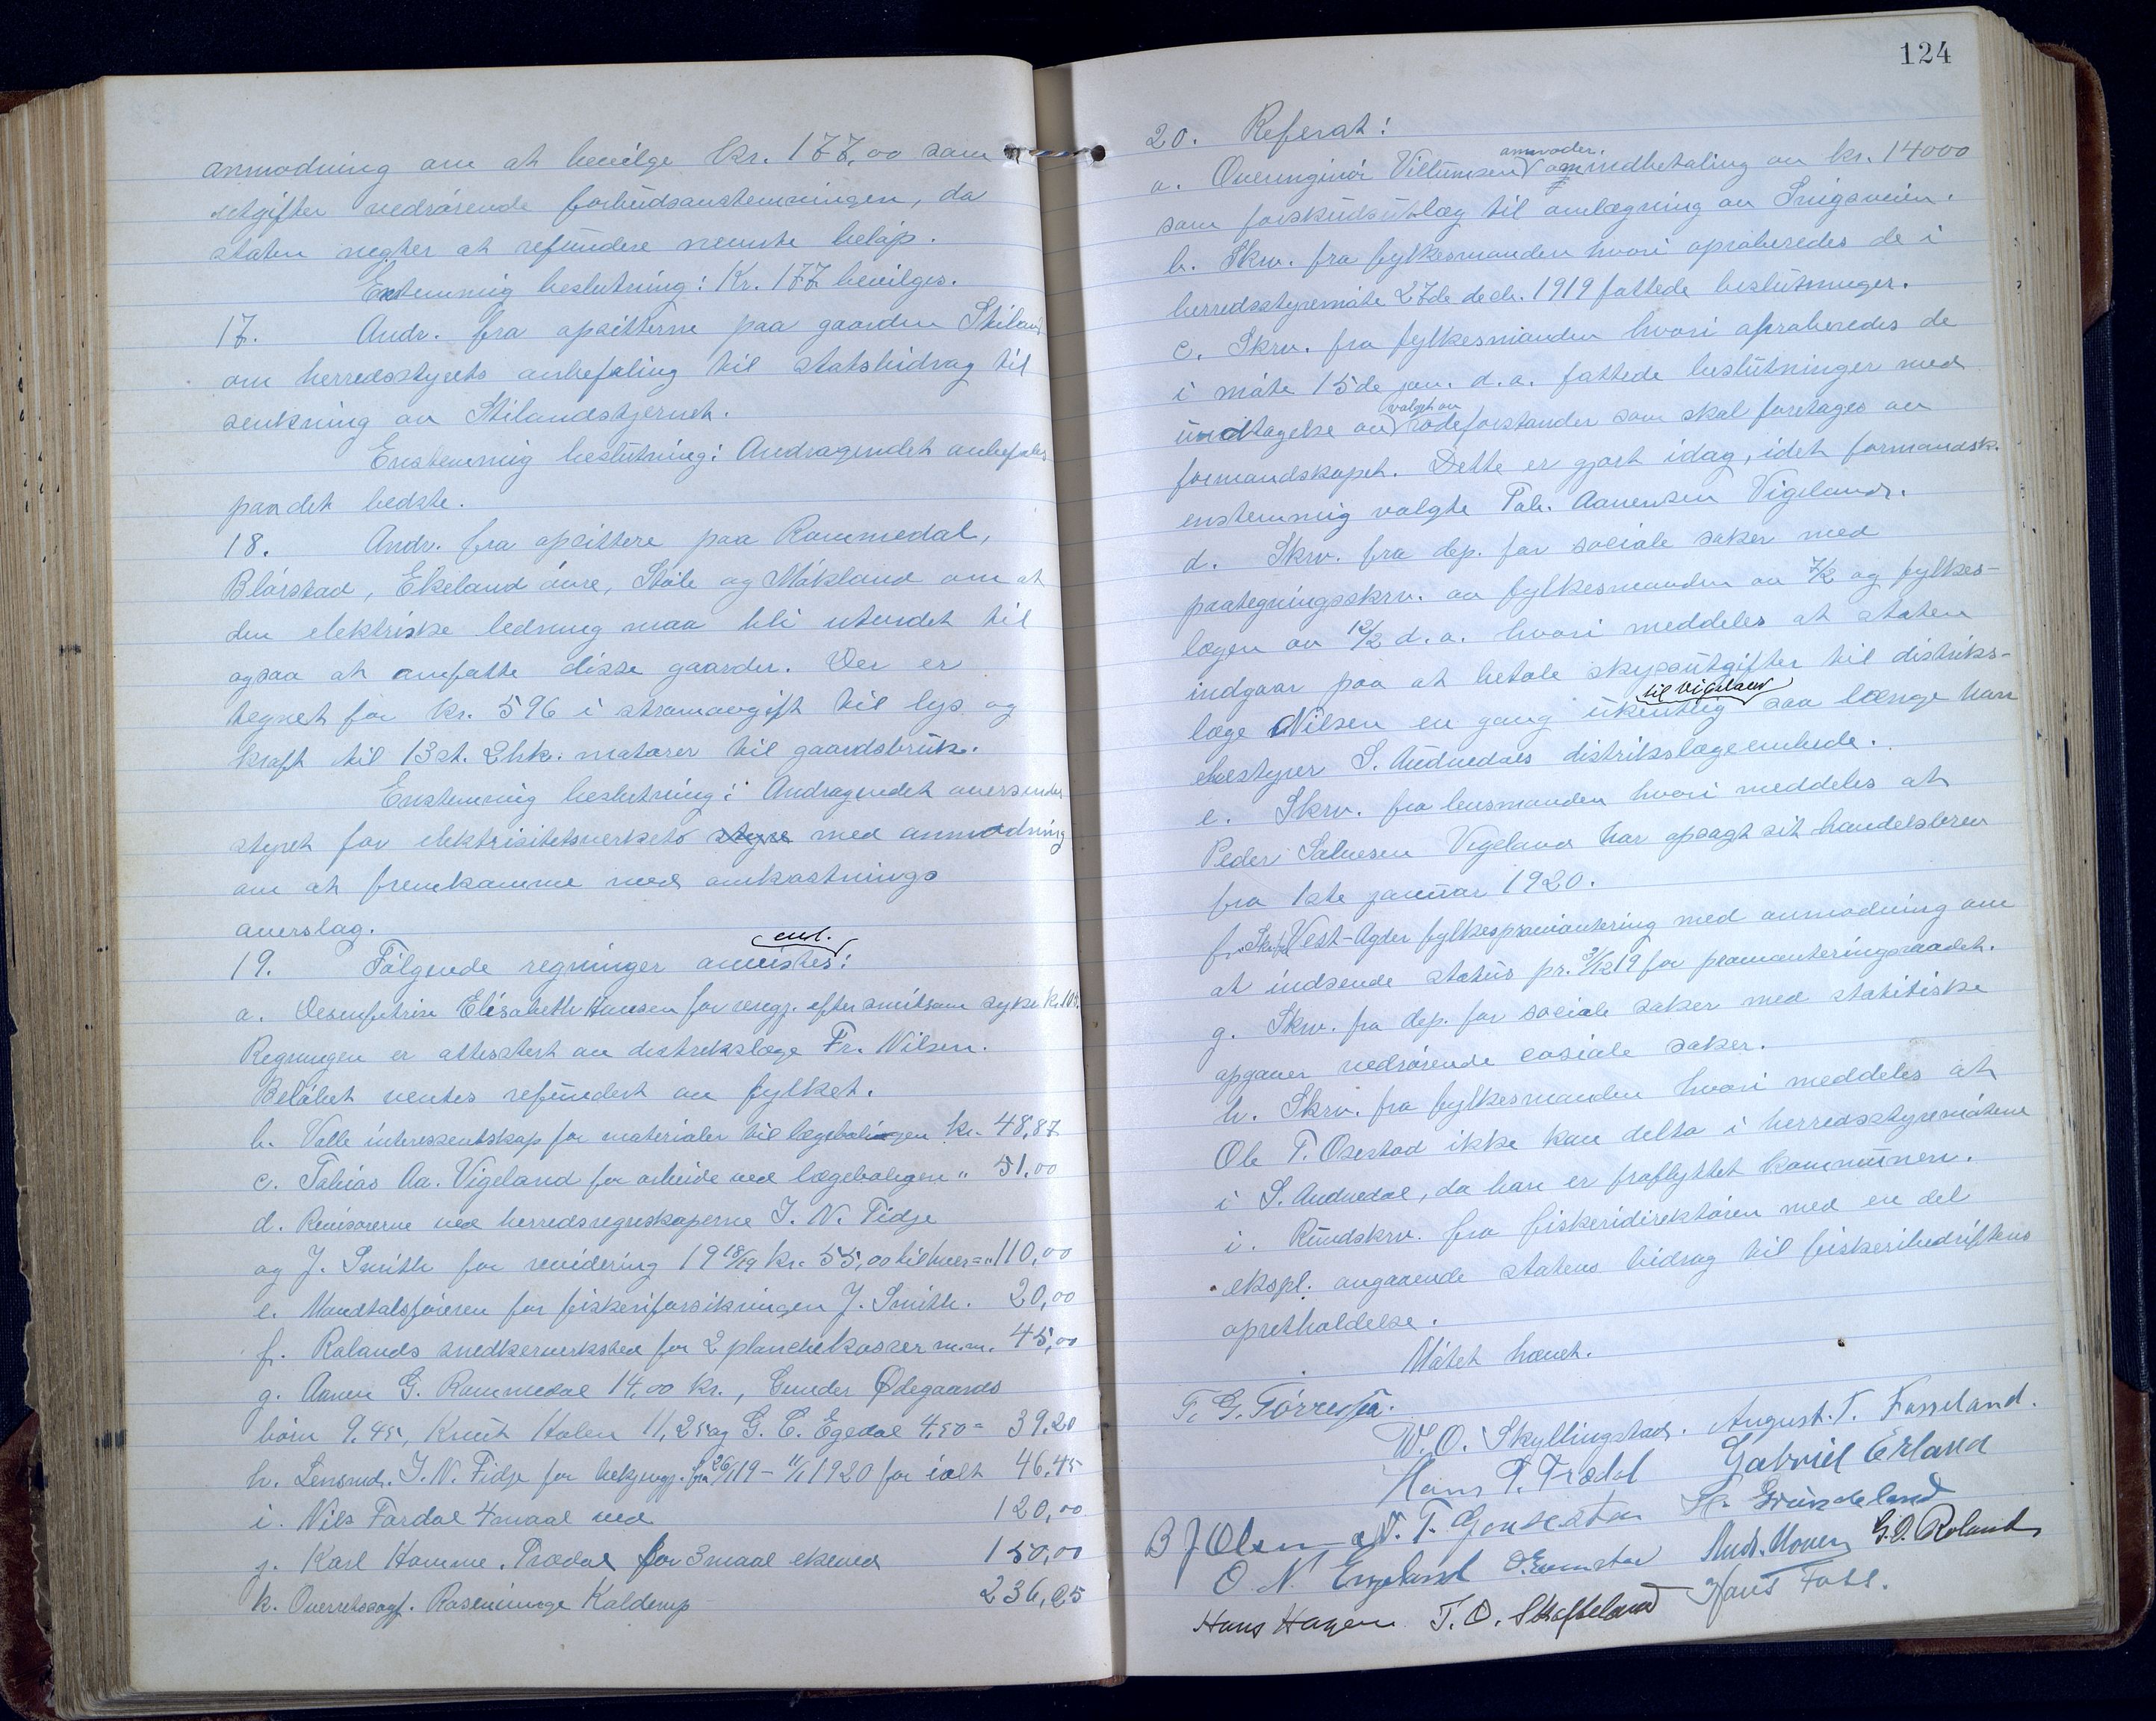 anmodning om at bevilge kr. 177,00 som
utgifter vedrørende forbudsavstemningen, da
staten negter at refundere nevnte beløp.
Enstemmig beslutning: Kr. 177 bevilges.
17. Andr. fra opsitterne paa gaarden Stiland
om herredsstyrets anbefaling til statsbidrag til
senkning av Stilandstjernet.
Enstemmig beslutning: Andragendet anbefales
paa det bedste.
18. Andr. fra opsittere paa Rommedal,
Blørstad, Ekeland øvre, Støle og Møkland om at
den elektriske ledning maa bli utvidet til
ogsaa at omfatte disse gaarder. Der er
tegnet for kr. 596 i strømavgift til lys og
kraft til 13 st. 2 hk. motorer til gaardsbruk.
Enstemmig beslutning: Andragendet oversendes
styret for elektrisitetsverkets styre med anmodning
om at fremkomme med omkostnings
overslag.
19. Følgende regninger anvistes: enst.
a. Desinfektrise Elisabeth Hansen for rengj. efter smitsom sykd. kr. 10
Regningen er attestert av distrikslæge Fr. Nilsen.
Beløbet ventes refundert av fylket.
b. Valle interessentskap for materialer til lægeboligen kr. 48,87
c. Tobias Aa. Vigeland for arbeide ved lægeboligen " 51,00
d. Revisorerne ved herredsregnskaperne J. N. Fidje
og J. Smith for revidering 19 18/19 kr. 55,00 til hver = " 110,00
e. Mandtalsføreren for fiskeriforsikringen J. Smith. 20,00
f. Rolands snedkerverksted for 2 planchekasser m.m. 45,00
g. Aanen G. Rommedal 14,00 kr., Gunder Ødegaards
børn 9,45, Knut Holen 11,25 og G. T. Egedal 4,50 = 39,20
h. Lensmd. J. N. Fidje for bekjengj. fra 26/1 19 - 11/1 1920 for ialt 46,45
i. Nils Fardal 4 maal ved 120,00
j. Karl Homme, Trædal for 3 maal ekeved 150,00
k. Overretssagf. Roseninge Kalderup 236,25
124
20. Referat:
a. Overingeniør Vettumsen anmoder om indbetaling av kr. 14000
som forskudsutlæg til omlægning av Snigsveien.
b. Skrv. fra fylkesmanden hvori aproberedes de i
herredsstyremøte 27de decbr. 1919 fattede beslutninger.
c. Skrv. fra fylkesmanden hvori aproberedes de
i møte 15de jan. d.a. fattede beslutninger med
undtagelse av valget av rodeforstander som skal foretages av
formandskapet. Dette er gjort idag, idet formandsk.
enstemmig valgte Tob. Aanensen Vigeland.
d. Skrv. fra dep. for sociale saker med
paategningsskrv. av fylkesmanden av 7/2 og fylkes-
lægen av 12/2 d.a. hvori meddeles at staten
indgaar paa at betale skyssutgifter til distriks-
læge Nilsen en gang ukentlig til Vigeland saa længe han
bestyrer S. Audnedals distrikslægeembede.
e. Skrv. fra lensmanden hvori meddeles at
Peder Salvesen Vigeland har opsagt sit handelsbrev
fra 1ste januar 1920.
f. Skr. fra Vest-Agder fylkesproviantering med anmodning om
at indsende status pr. 31/12 19 for provianteringsraadet.
g. Skrv. fra dep. for sociale saker med statitiske
opgaver vedrørende sosiale saker.
h. Skrv. fra fylkesmanden hvori meddeles at
Ole T. Osestad ikke kan delta i herredsstyremøtene
i S. Audnedal, da han er fraflyttet kommunen.
i. Rundskrv. fra fiskeridirektøren med en del
ekspl. angaaende statens bidrag til fiskeribedriftens
opretholdelse.
Møtet hævet.
T. G. Tørresen.
W. O. Skyllingstad. August. T. Fosseland.
Hans P. Trædal Gabriel Erland
B J Olsen N. T. Gonsestad
O N. Engeland And. Hoven G. O. Roland
Hans Hagen T. O. Skofteland Hans Foss.